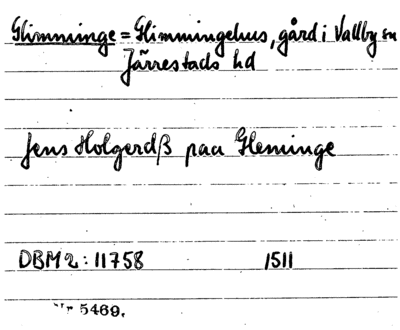 Glimminge = Glimmingehus, gård i Vallby sn
Järrestads hd
Jens Holgerdß paa Gleminge
DBM 2: 11758 1511
Nr 5469.